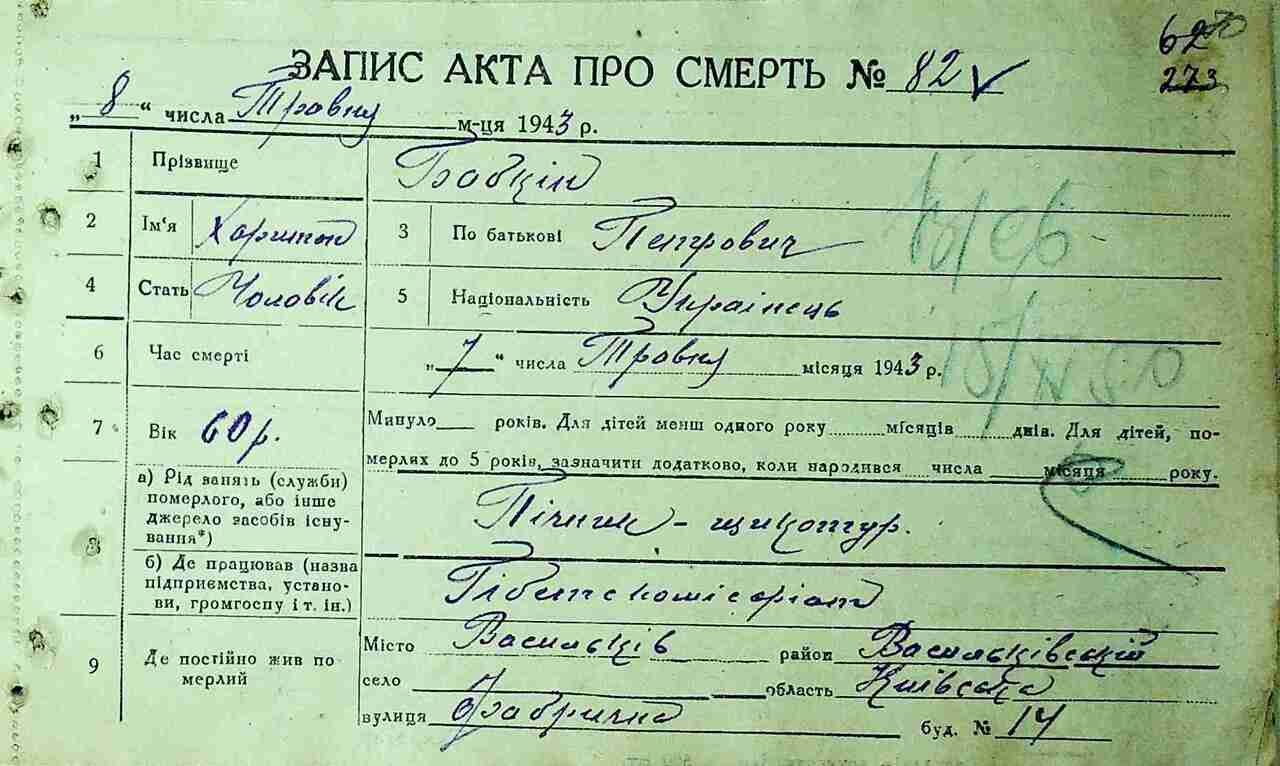 62 70
273
ЗАПИС АКТА ПРО СМЕРТЬ № 82
„8“ числа Травня м-ця 1943 р.
1 Прізвище Бабкін
2 Ім'я Харитон 3 По батькові Петрович
4 Стать Чоловік 5 Національність Українець
6 Час смерті „7“ числа Травня місяця 1943 р.
7 Вік 60 р. Минуло років. Для дітей менш одного року місяців днів. Для дітей, по-
мерлях до 5 років, зазначити додатково, коли народився числа місяця року.
8 а) Рід занять (служби)
померлого, або інше
джерело засобів існу-
вання*) Пічник - щикотур.
б) Де працював (назва
підприємства, устано-
ви, громгоспу і т. ін.) Гібетскомісаріат
9 Де постійно жив по
мерлий
Місто Васильків район Васильківській
село область Київська
вулиця Фабрична буд. № 14